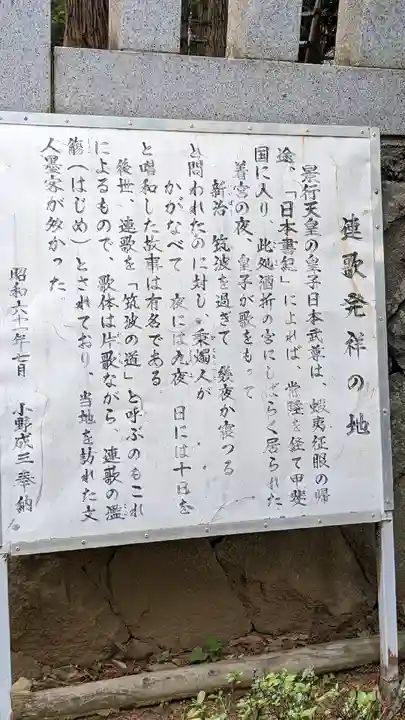 連歌発祥の地
景行天皇の皇子日本武尊は、蝦夷征服の帰
途、「日本書紀」によれば、常陸を経て甲斐
国に入り、此処酒折の宮にしばらく居られた。
着宮の夜、皇子が歌をもって
新治 筑波を過ぎて 幾夜か寝つる
と問われたのに対し、秉燭人が
かがなべて 夜には九夜 日には十日を
と唱和した故事は有名である。
後世、連歌を「筑波の道」と呼ぶのもこれ
によるもので、歌体は片歌ながら、連歌の濫
觴(はじめ)とされており、当地を訪れた文
人墨客が多かった。
昭和六十一年七月 小野成三奉納